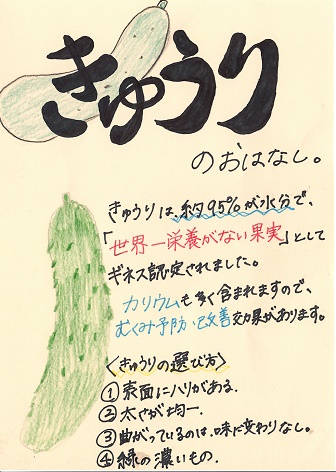 きゅうり
のおはなし。
きゅうりは、約95%が水分で、
「世界一栄養がない果実」として
ギネス認定されました。
カリウムも多く含まれますので、
むくみ予防・改善効果があります。
〈きゅうりの選び方〉
①表面にハリがある.
②太さが均一.
③曲がっているのは、味に変わりなし。
④緑の濃いもの.